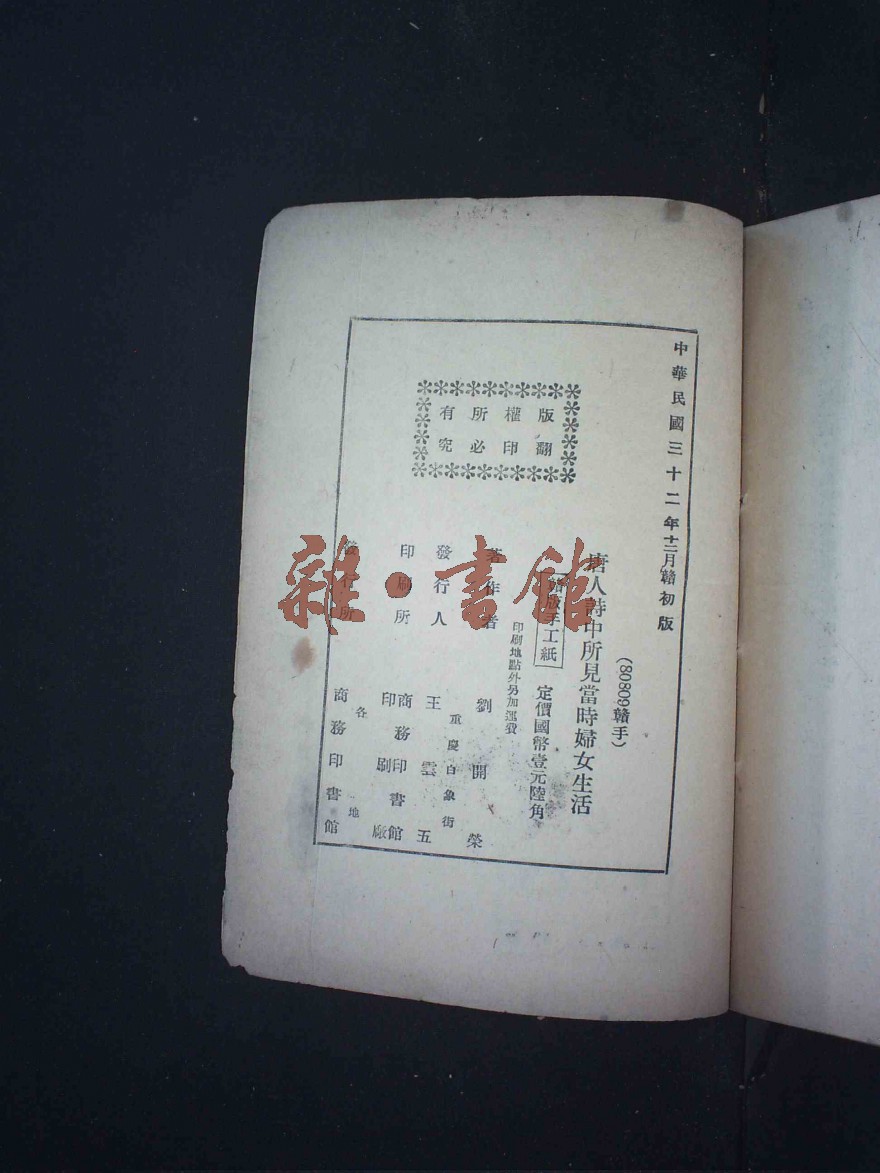 中華民國三十二年十二月贛初版
(80809贛手)
唐人詩中所見當時婦女生活
版手工紙
定價國幣壹元陸角
印刷地點外另加運費
著作者
劉開榮
發行人
重慶白象街
王雲五
印刷所
商務印書館
印刷廠
發行所
各地
商務印書館
版權所有
翻印必究
雜·書館